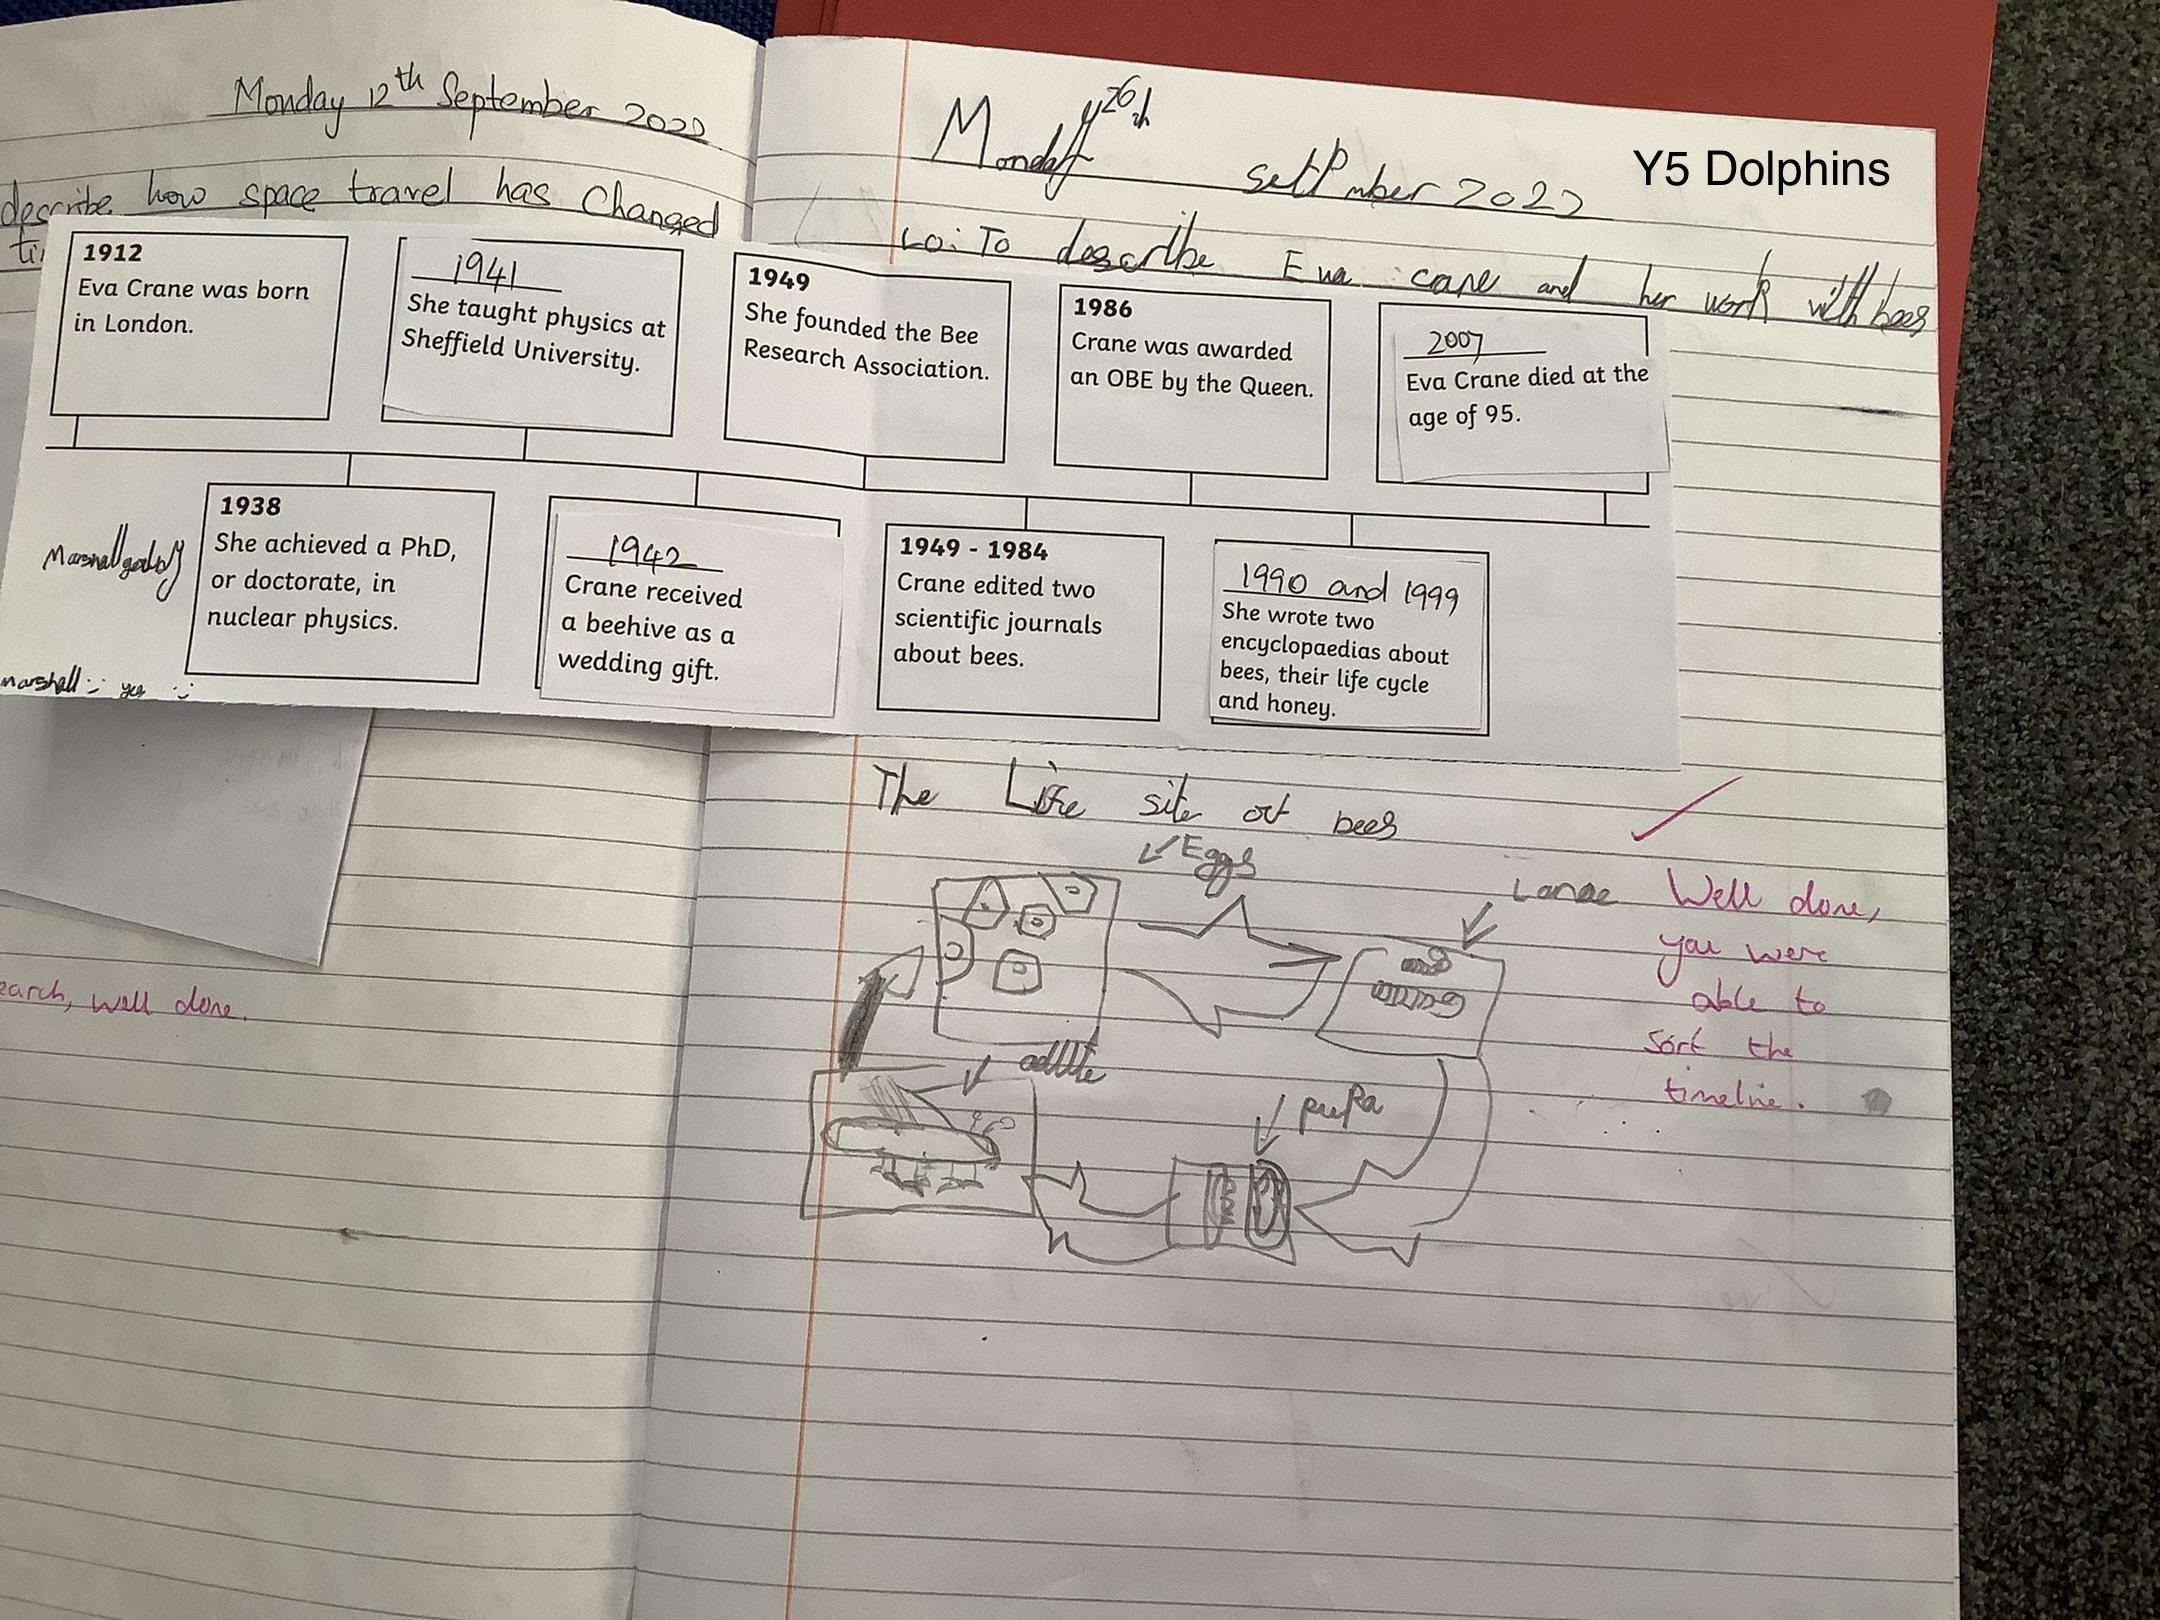 Monday 12th September 2022
describe how space travel has changed
Y5 Dolphins
Monday 26th setpmber 2022
Lo: To describe Eva crane and her work with bees
1912
Eva Crane was born
in London.
1941
She taught physics at
Sheffield University.
1949
She founded the Bee
Research Association.
1986
Crane was awarded
an OBE by the Queen.
2007
Eva Crane died at the
age of 95.
1938
She achieved a PhD,
or doctorate, in
nuclear physics.
1942
Crane received
a beehive as a
wedding gift.
1949 - 1984
Crane edited two
scientific journals
about bees.
1990 and 1999
She wrote two
encyclopaedias about
bees, their life cycle
and honey.
marshall :) yes :)
The Life site of bees
Eggs
pupa
Well done,
you were
able to
sort the
timeline.
earch, well done.